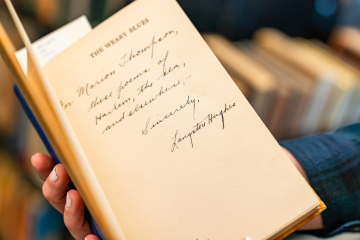 THE WEARY BLUES
For Marion Thompson,
these poems of
Harlem, the sea,
and elsewhere,-
Sincerely,
Langston Hughes